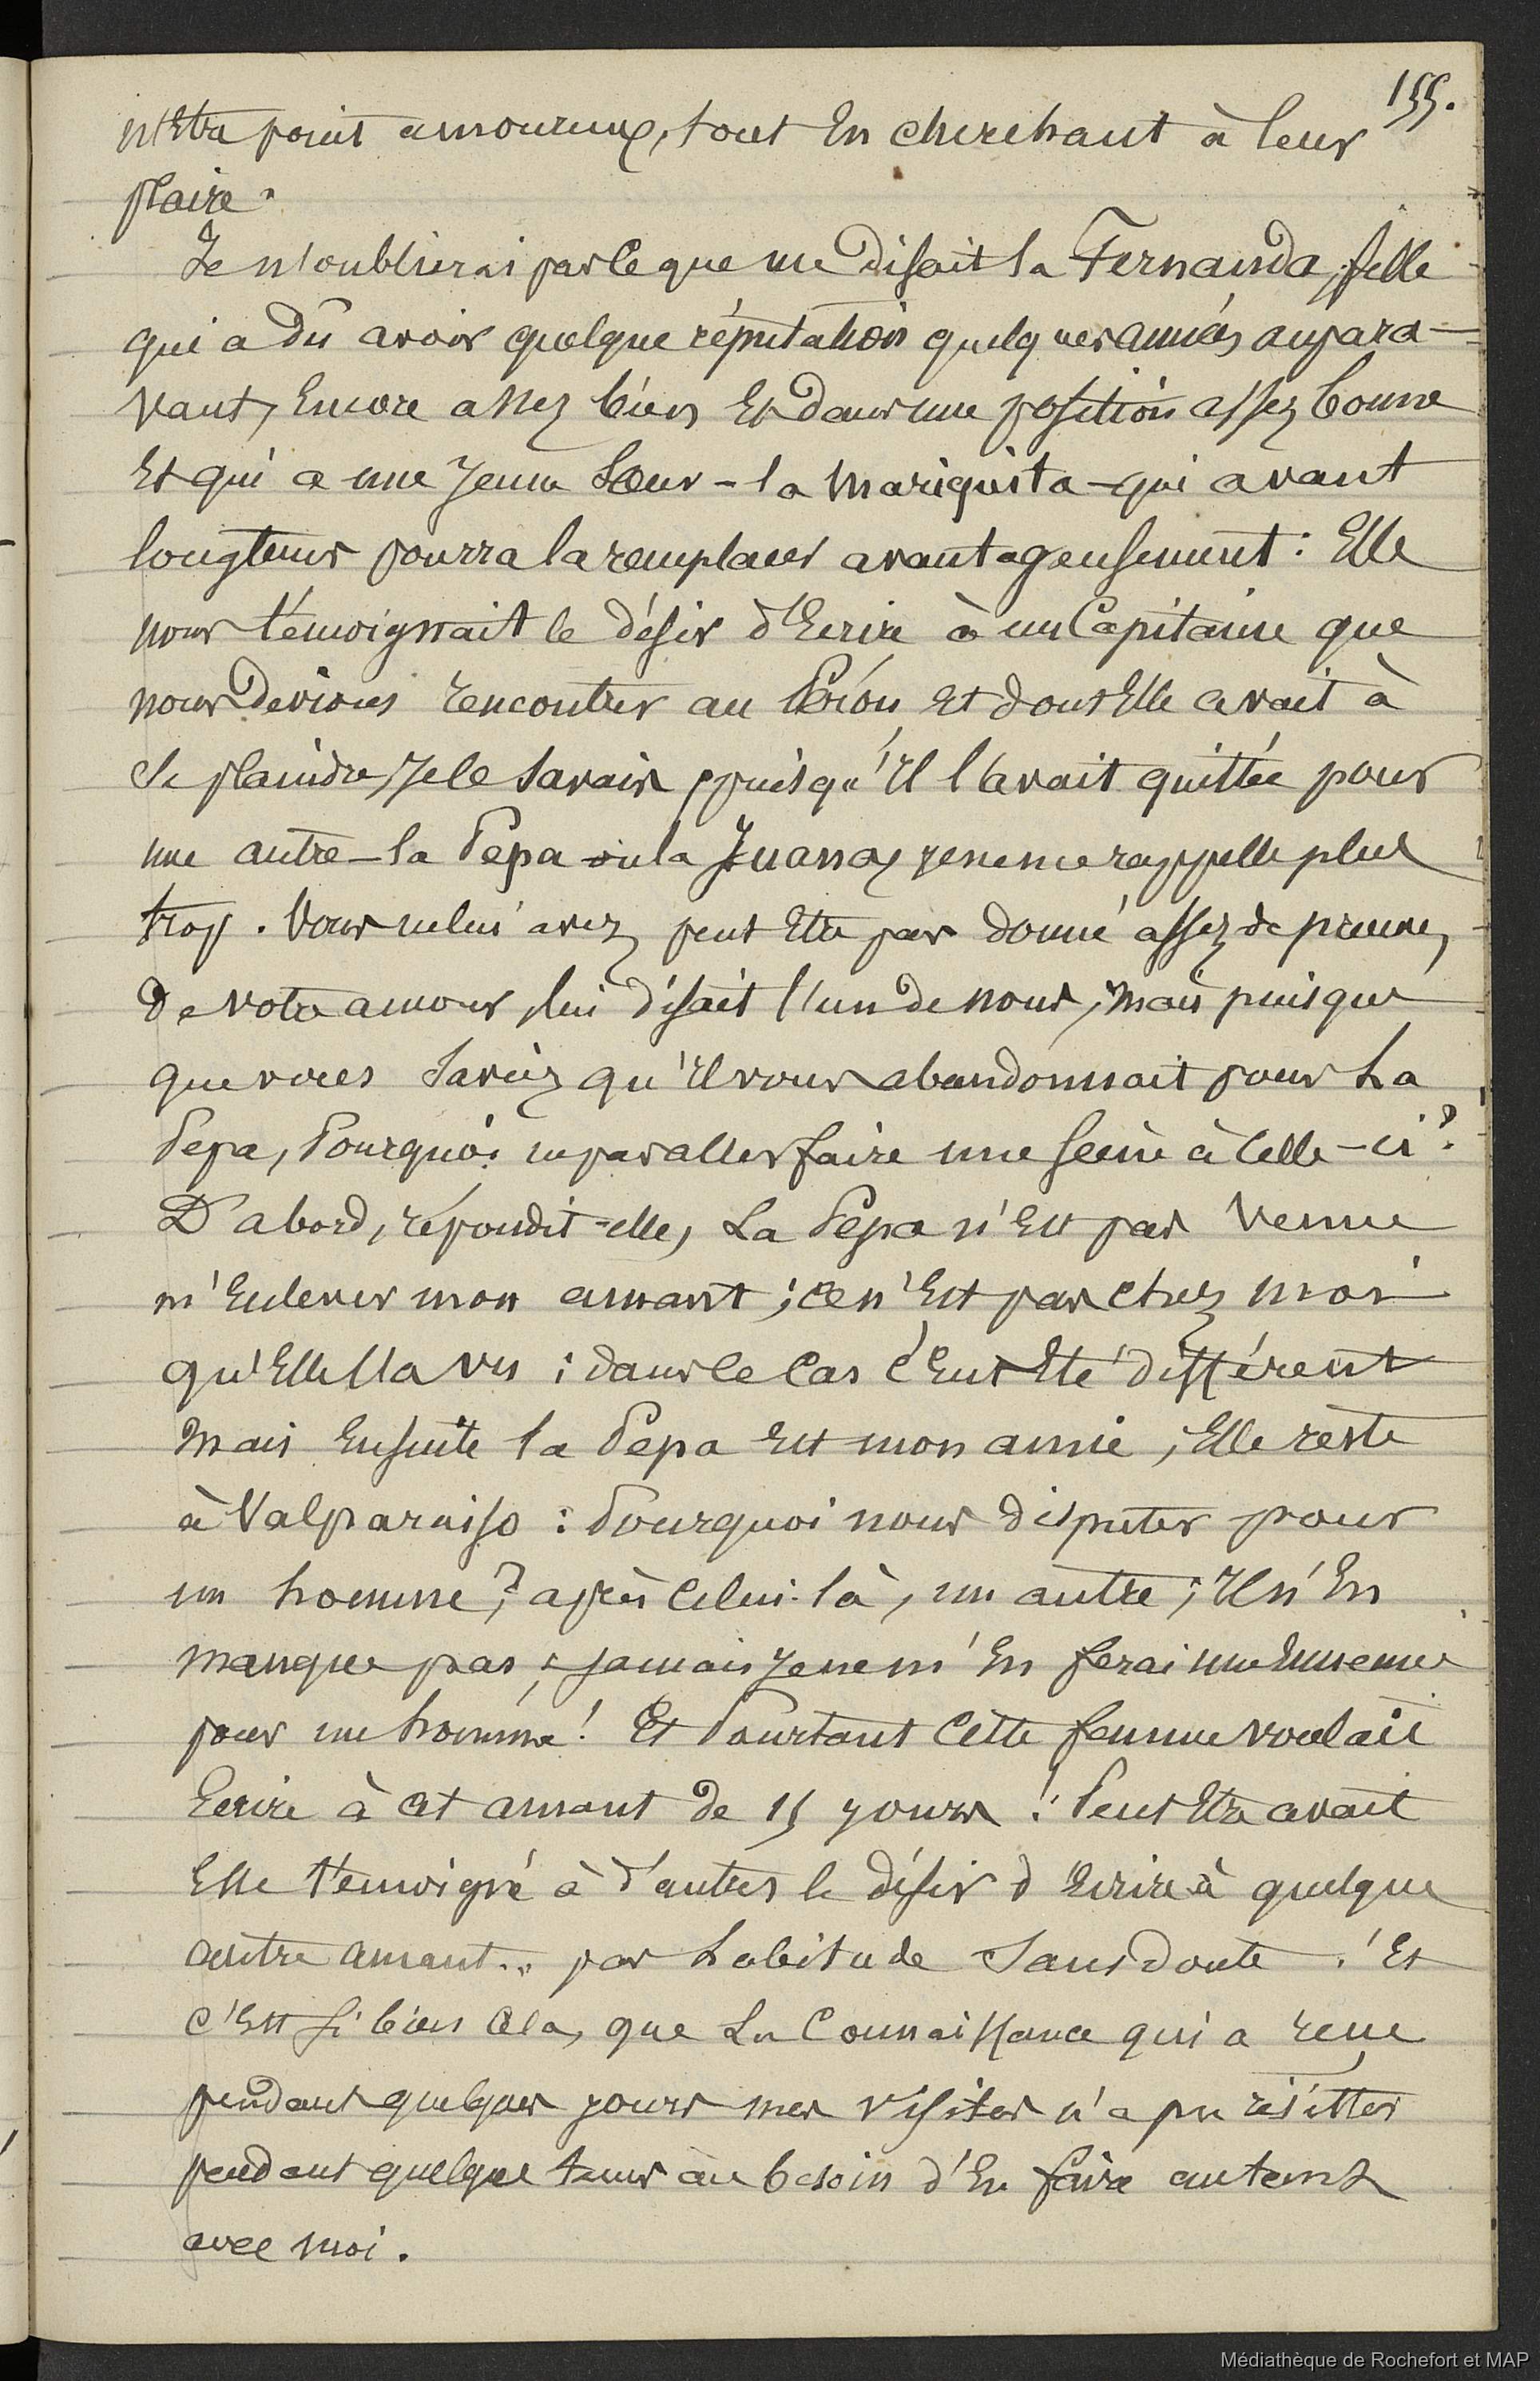 155.
n'Etre point amoureux, tout En cherchant à leur
plaire.
Je n'oublierai pas ce que me disait la Fernanda, fille
qui a dû avoir quelque réputation quelques années aupara-
vant, Encore assez bien Et dans une position assez bonne
Et qui a une jeune Soeur - la Mariquita - qui avant
longtems pourra la remplacer avantageusement : Elle
nous témoignait le désir d'Ecrire à un Capitaine que
nous devions rencontrer au Pérou Et dont Elle avait à
se plaindre, je le savais, puisqu'il l'avait quittée pour
une autre - la Pepa ou la Juana, je ne me rappelle plus
trop. Vous ne lui avez peut Etre pas donné assez de preuves
de votre amour, lui disait l'un de nous, mais puisque
que vous saviez qu'il vous abandonnait pour La
Pepa, Pourquoi ne pas aller faire une scène à Celle-ci ?
D'abord, répondit-elle, La Pepa n'Est pas venue
m'Enlever mon amant ; ce n'Est pas chez moi
qu'Elle l'a vu : dans ce cas c'Eut Eté différent
Mais Ensuite la Pepa Est mon amie ; Elle reste
à Valparaiso : Pourquoi nous disputer pour
un homme ? après Celui-là, un autre ; Il n'En
manque pas ; jamais je ne m'En ferai une Ennemie
pour un homme ! Et Pourtant Cette femme voulait
Ecrire à cet amant de 15 jours ! Peut Etre avait
Elle témoigné à d'autres le désir d'Ecrire à quelque
autre amant .. par habitude Sans doute ! Et
c'Est si bien Cela, que La Connaissance qui a reçu
pendant quelques jours mes visites n'a pu résister
pendant quelque tems au besoin d'En faire autant
avec moi.
Médiathèque de Rochefort et MAP